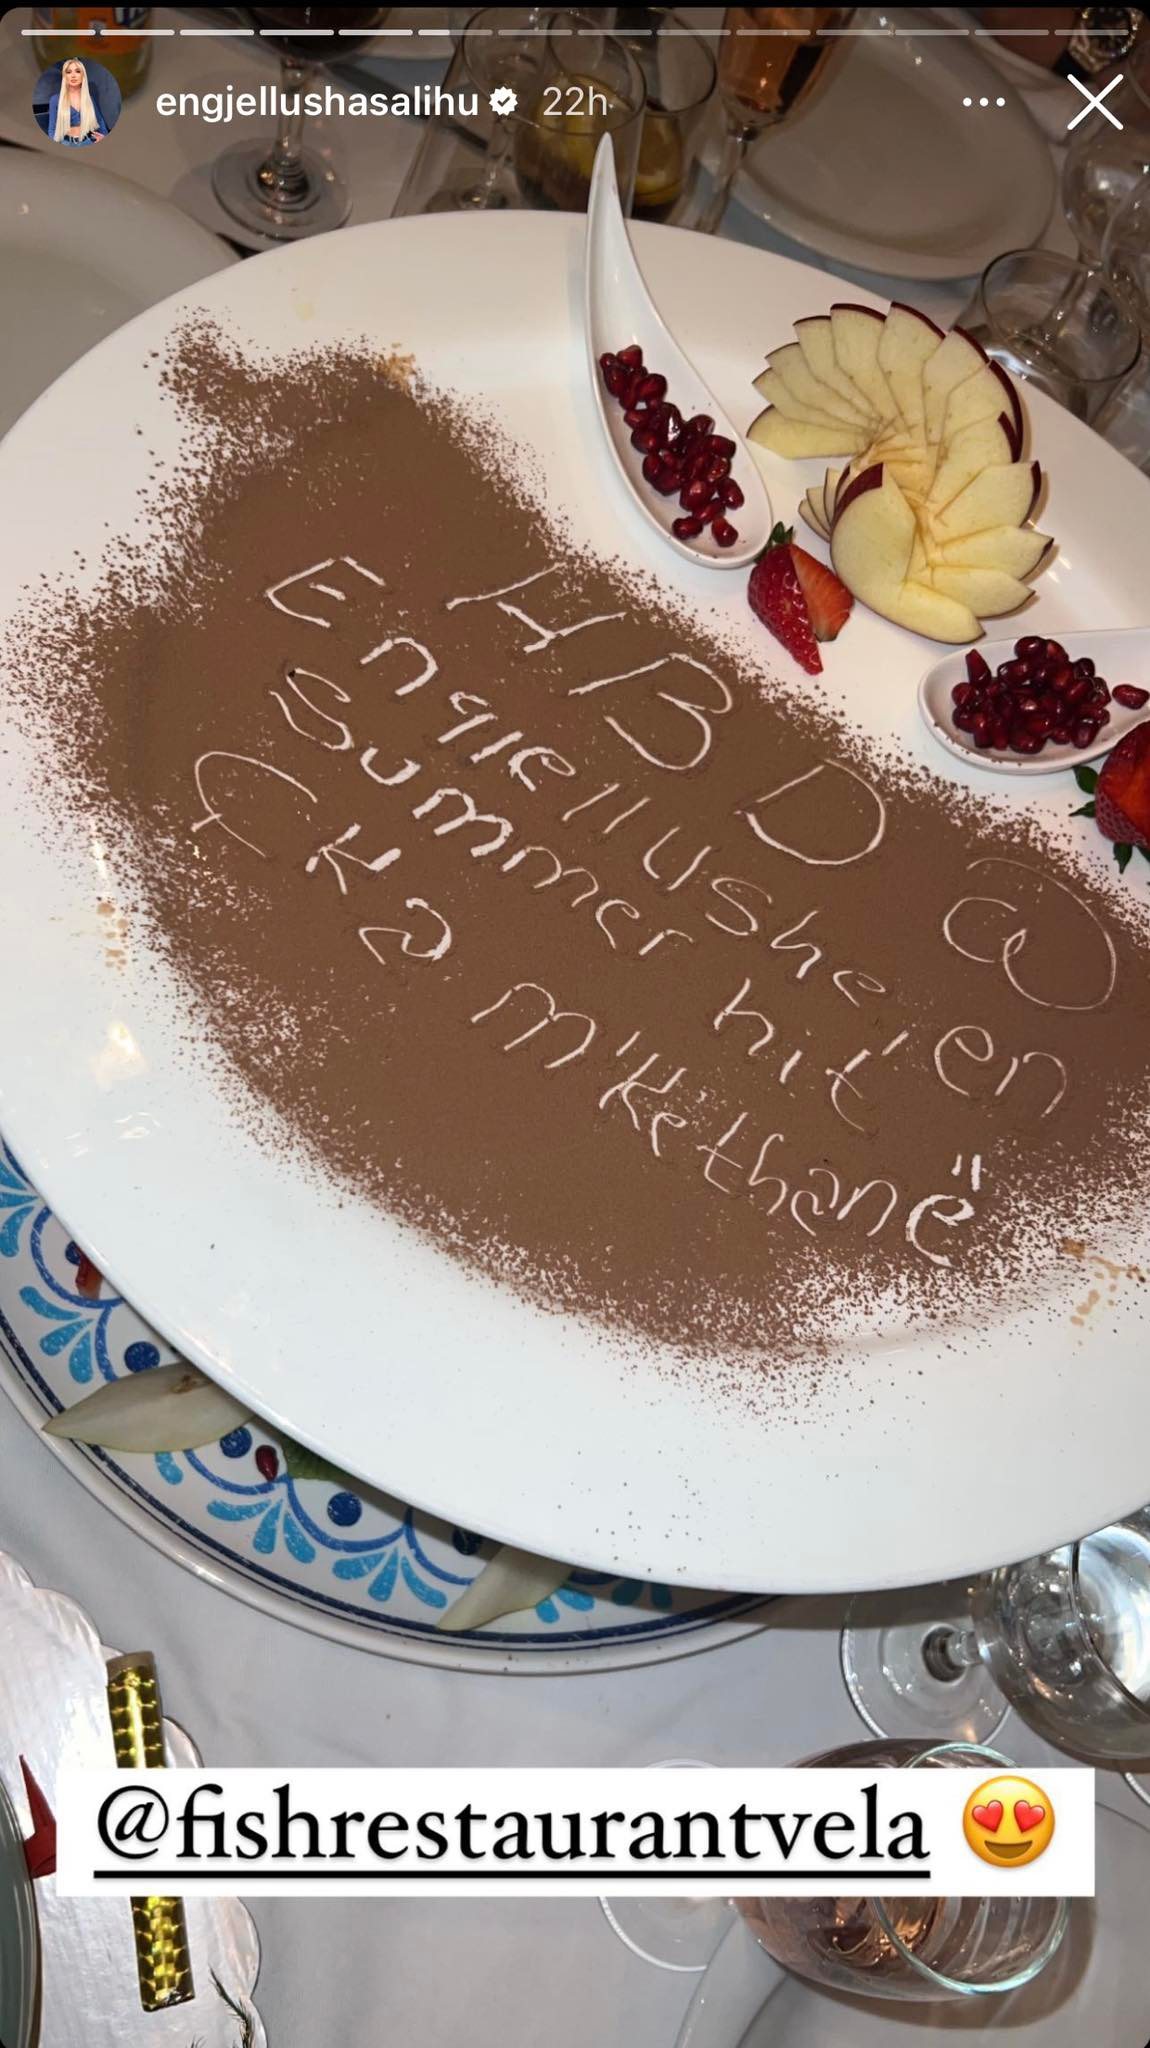 engjellushasalihu 22h
HBD
Engjellushe'en
Summer hit
AKA m'kethanë
@fishrestaurantvela 😍